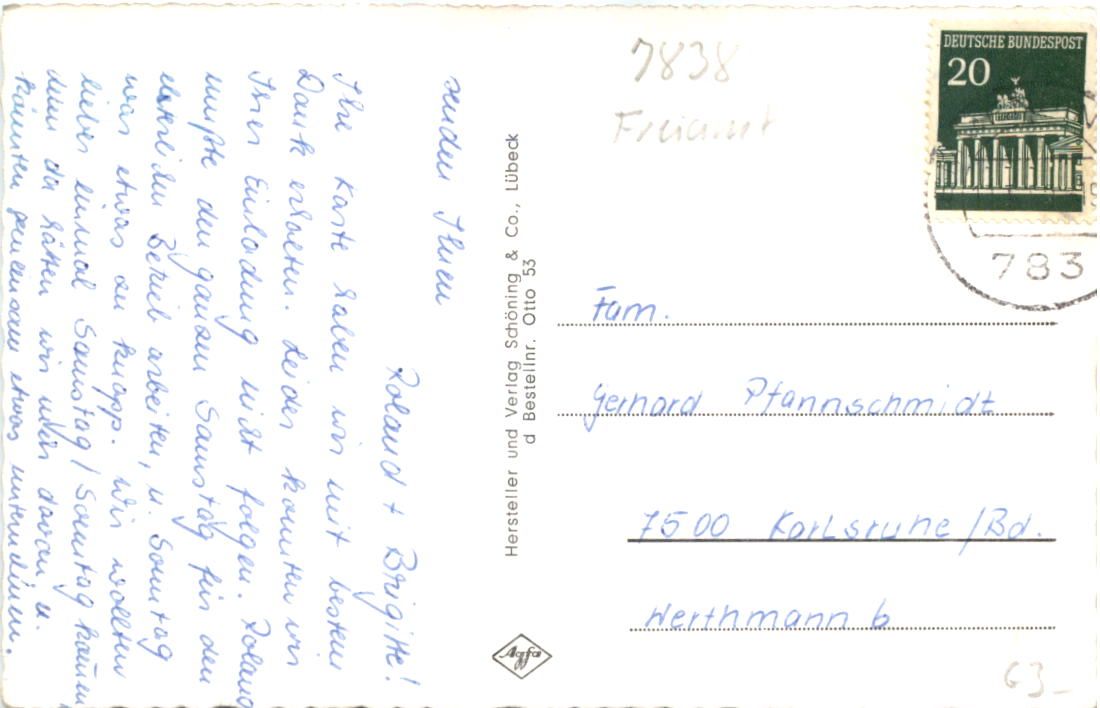 senden Ihnen
Roland + Brigitte!
Ihre Karte haben wir mit bestem
Dank erhalten. Leider konnten wir
Ihrer Einladung nicht folgen. Roland
mußte den ganzen Samstag für den
elterlichen Betrieb arbeiten, u. Sonntag
war etwas zu knapp. Wir wollten
lieber einmal Samstag/Sonntag
denn da hätten wir mehr davon u.
könnten gemeinsam etwas unternehmen.
Hersteller und Verlag Schöning & Co., Lübeck
d Bestellnr. Otto 53
Agfa
7838
Freiamt
DEUTSCHE BUNDESPOST
20
783
Fam.
Gerhard Pfannschmidt
7500 Karlsruhe/Bd.
Werthmann 6
G3-